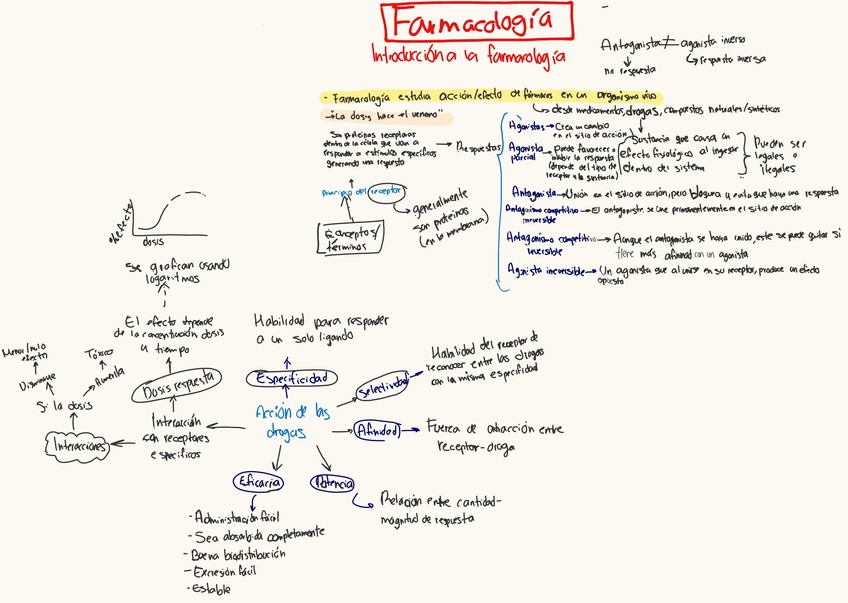 Farmacología
Introducción a la farmacología
Antagonista ≠ agonista inverso
no respuesta
respuesta inversa
- Farmacología estudia acción/efecto de fármacos en un organismo vivo
desde medicamentos, drogas, compuestos naturales/sintéticos.
"La dosis hace el veneno"
Son proteínas receptoras
dentro de la célula que van a
responder a estímulos específicos
generando una respuesta
Respuestas
principio del receptor
generalmente
son proteínas
(en la membrana)
Conceptos/
términos
Agonistas → Crea un cambio
en el sitio de acción
Agonista
parcial
Puede favorecer o
inhibir la respuesta
(depende del tipo de
receptor a la sustancia)
Sustancia que causa un
efecto fisiológico al ingresar
dentro del sistema
Pueden ser
legales o
ilegales
Antagonista → Unión en el sitio de acción, pero bloquea y evita que haya una respuesta
Antagonismo competitivo → El antagonista se une permanentemente en el sitio de acción
irreversible
Antagonismo competitivo → Aunque el antagonista se haya unido, este se puede quitar si
reversible
tiene más afinidad con un agonista
Agonista irreversible → Un agonista que al unirse en su receptor, produce un efecto
opuesto
efecto
dosis
Se grafican usando
logaritmos
El efecto depende
de la concentración dosis
y tiempo
Dosis respuesta
Interacción
son receptores
específicos
Menor/nulo
efecto
Disminuye
Tóxico
Aumenta
Si la dosis
Interacciones
Habilidad para responder
a un solo ligando
Especificidad
Acción de las
drogas
Selectividad
Habilidad del receptor de
reconocer entre las drogas
con la misma especifidad
Afinidad
Fuerza de atracción entre
receptor-droga
Eficacia
- Administración fácil
- Sea absorbida completamente
- Buena biodistribución
- Excresión fácil
- Estable
Potencia
Relación entre cantidad-
magnitud de respuesta